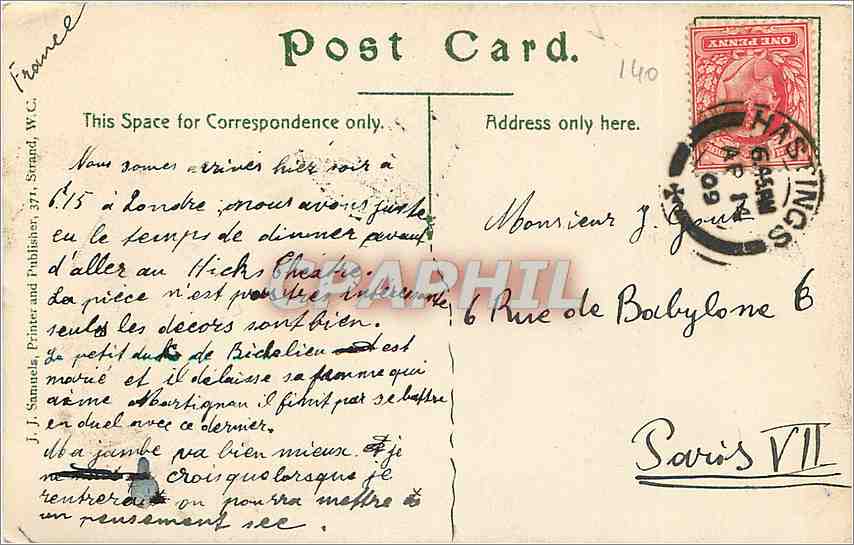 France
Post Card.
140
ONE PENNY
HASTINGS
6.45AM
AP 14
09
This Space for Correspondence only.
Address only here.
J. J. Samuels, Printer and Publisher, 371, Strand, W.C.
Nous somes arrivés hier soir a
6h15 à Londre, nous avons juste
eu le temps de dinner avant
d'aller au Hicks Théatre.
La pièce n'est pas très interessante
seuls les décors sont bien.
Le petit duc de Richelieu est
marié et il délaisse sa femme qui
aime Martignan il finit par se battre
en duel avec ce dernier.
Ma jambe va bien mieux. je
crois que lorsque je
rentrerai on pourra mettre
un pensement sec.
Monsieur J.
6 Rue de Babylone 6
Paris VII
CPAPHIL